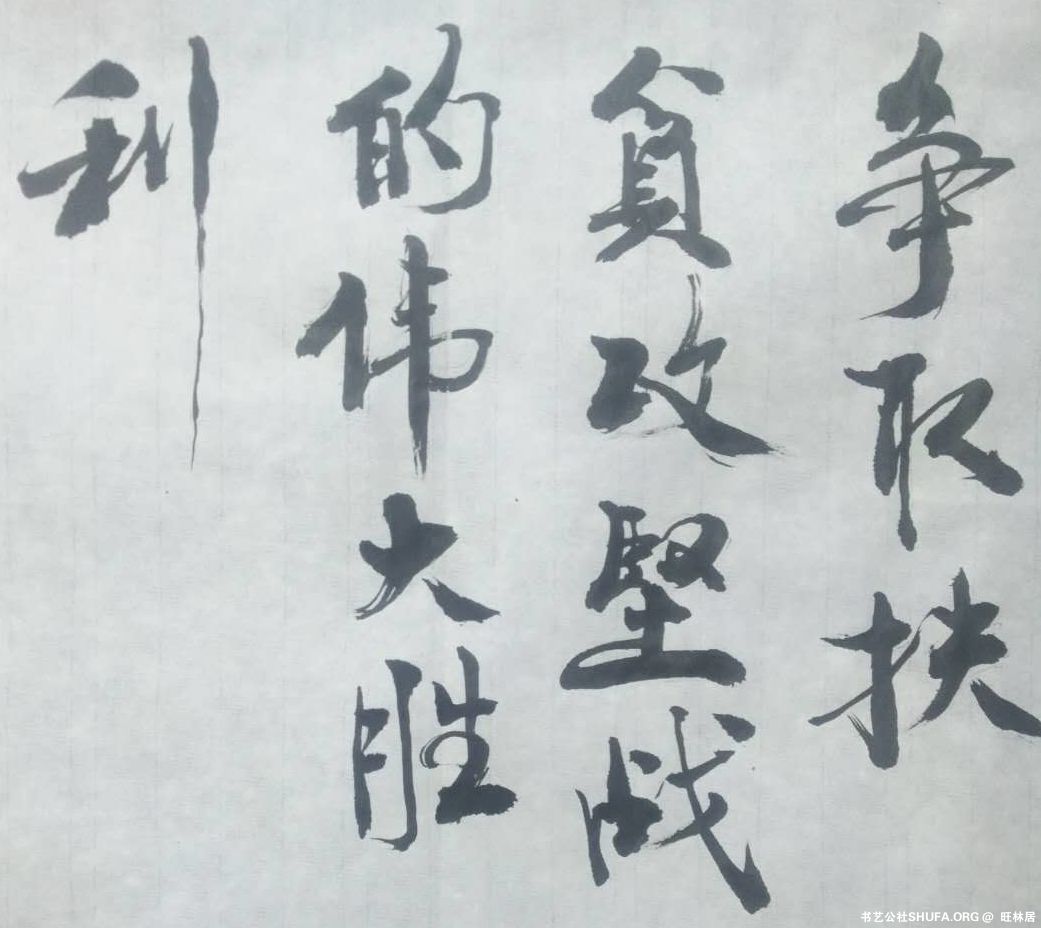 争取扶
贫攻坚战
的伟大胜
利
书艺公社SHUFA.ORG @ 旺林居